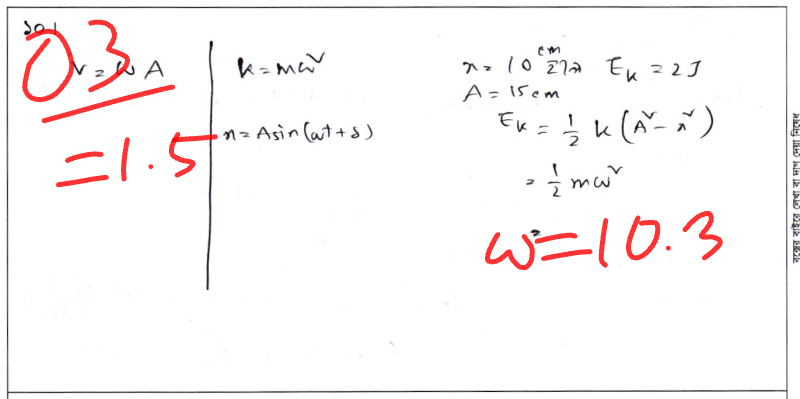 ১০।
03
v = ω A
= 1.5
k = mω²
x = A sin (ωt + δ)
x = 10 cm
E_k = 2J
A = 15 cm
E_k = 1/2 k (A² - x²)
= 1/2 mω²
ω = 10.3
বক্সের বাইরে লেখা বা দাগ দেয়া নিষেধ